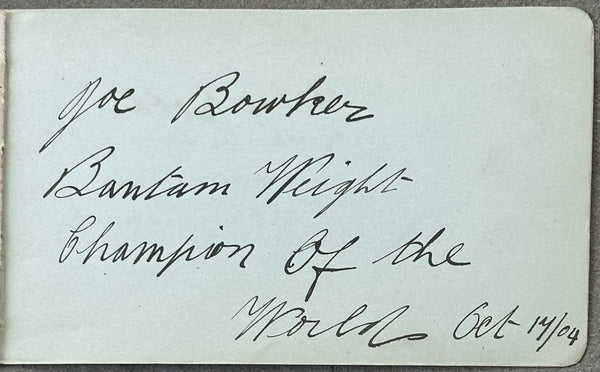 Joe Bowker
Bantam Weight
Champion Of the
World Oct 17/04